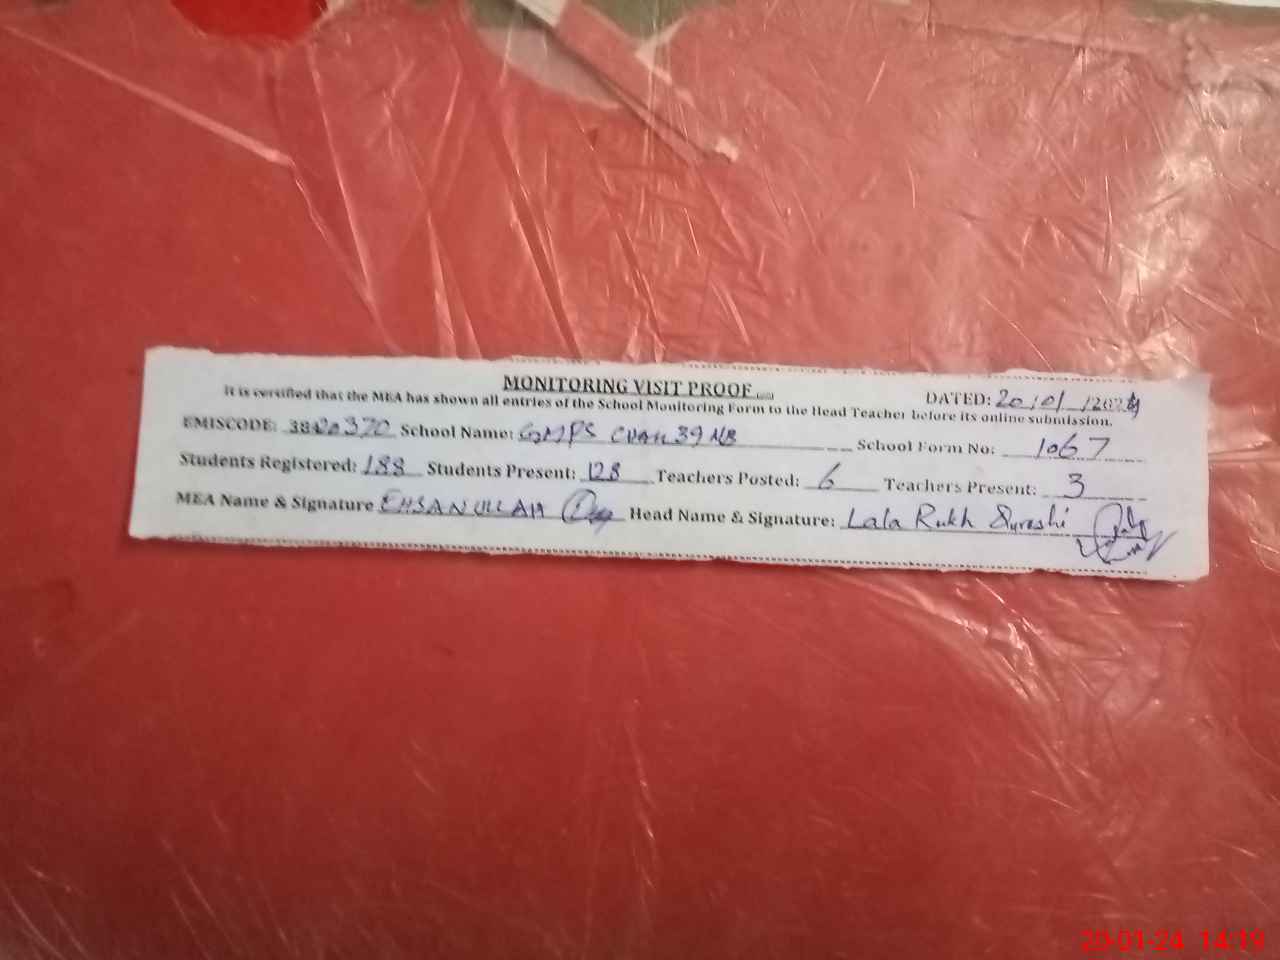 MONITORING VISIT PROOF
DATED: 20/01/2024
It is certified that the MEA has shown all entries of the School Monitoring Form to the Head Teacher before its online submission.
EMISCODE: 38420370 School Name: GMPS CHAK 39 NB School Form No: 1067
Students Registered: 188 Students Present: 128 Teachers Posted: 6 Teachers Present: 3
MEA Name & Signature EHSAN ULLAH Head Name & Signature: Lala Rukh Qureshi
20-01-24 14:19